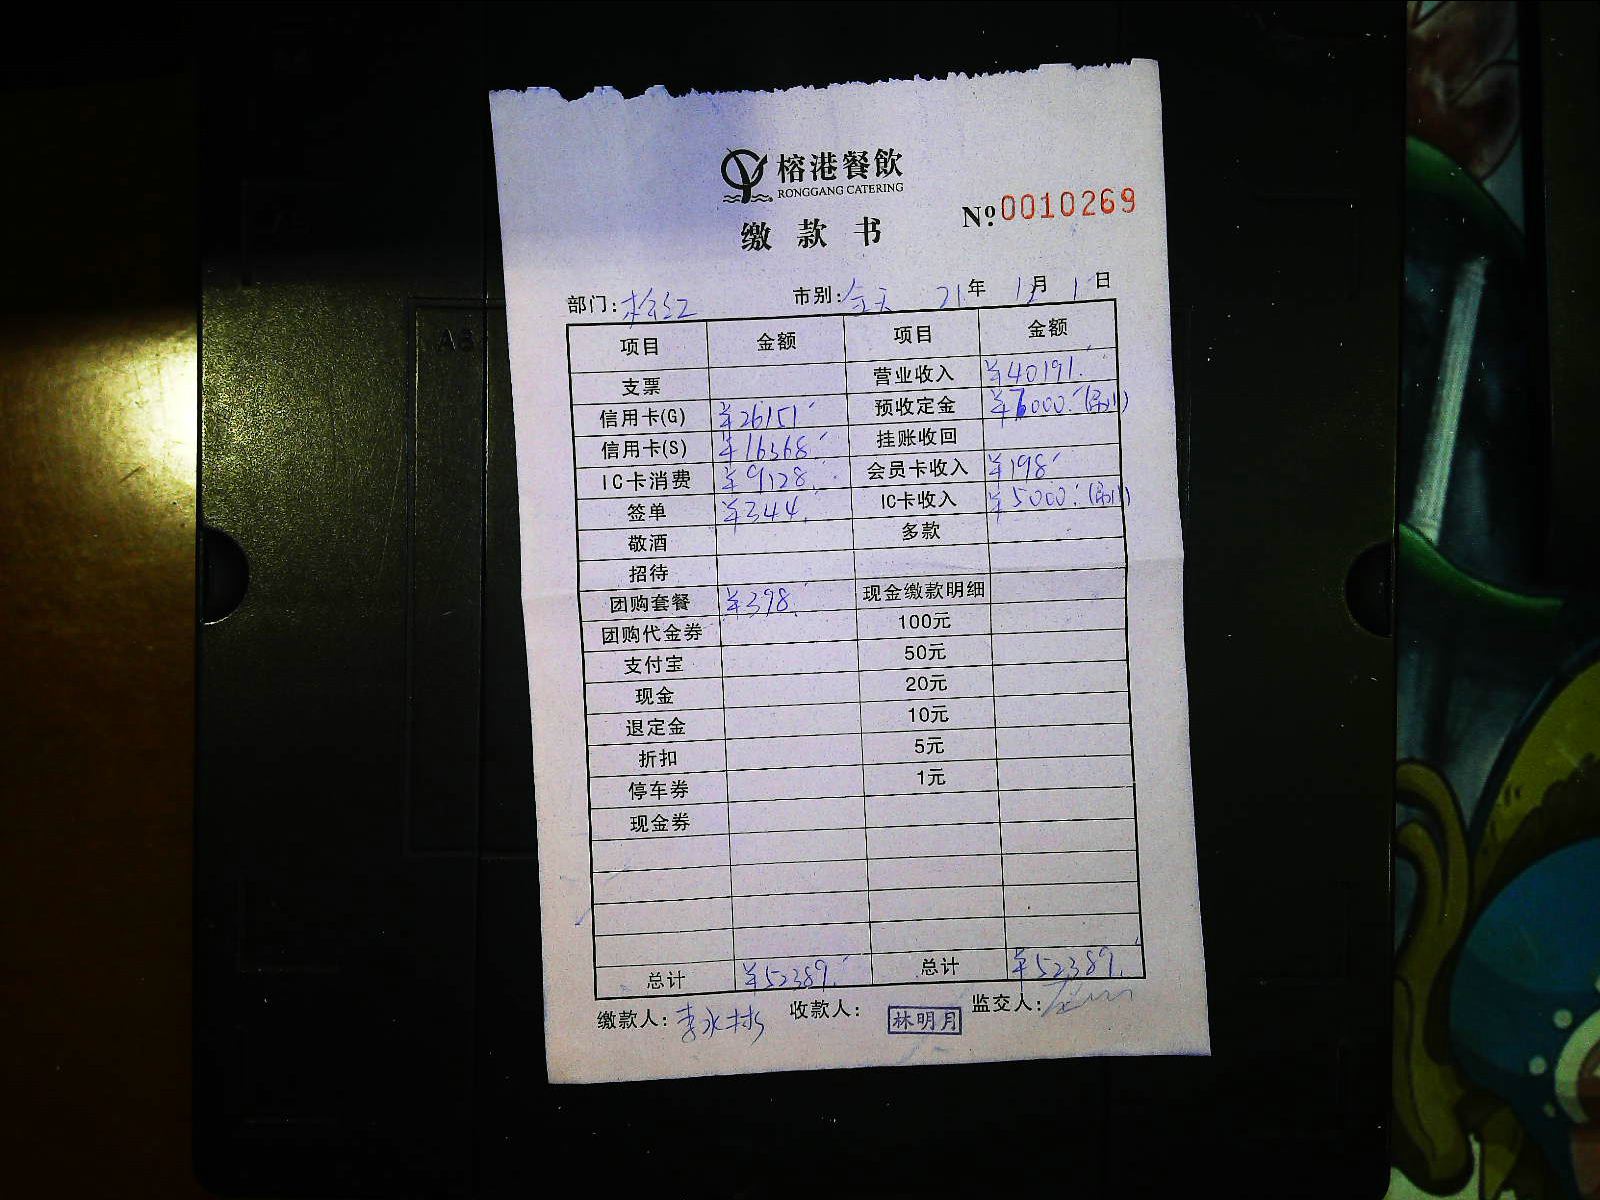 榕港餐飲
RONGGANG CATERING
缴款书 Nº 0010269
部门: 市别: 全天 21年 1月 1日
项目 金额 项目 金额
支票 营业收入 ¥40191.
信用卡(G) ¥26151 预收定金 ¥7000.
信用卡(S) ¥16368. 挂账收回
IC卡消费 ¥9128. 会员卡收入 ¥198
签单 ¥344. IC卡收入 ¥5000.
敬酒 多款
招待
团购套餐 ¥398. 现金缴款明细
团购代金券 100元
支付宝 50元
现金 20元
退定金 10元
折扣 5元
停车券 1元
现金券
总计 ¥52389. 总计 ¥52389.
缴款人: 收款人: 林明月 监交人: